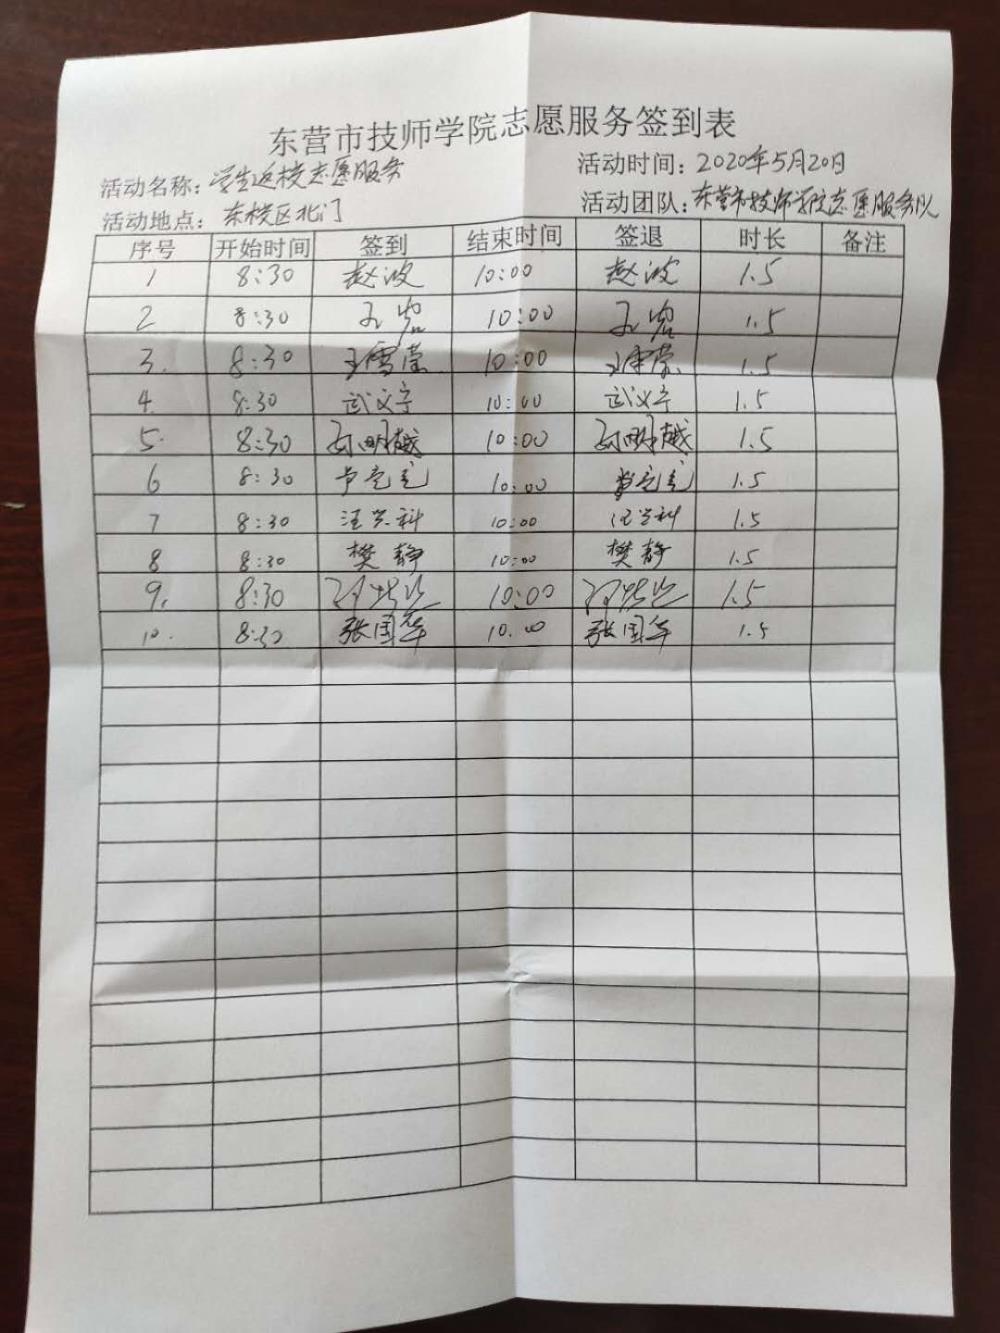 东营市技师学院志愿服务签到表
活动名称：学生返校志愿服务 活动时间：2020年5月20日
活动地点：东校区北门 活动团队：东营市技师学院志愿服务队
序号 开始时间 签到 结束时间 签退 时长 备注
1 8:30 赵波 10:00 赵波 1.5
2 8:30 10:00 1.5
3. 8:30 王雪莹 10:00 1.5
4. 8:30 武文宁 10:00 武文宁 1.5
5. 8:30 孙明越 10:00 孙明越 1.5
6 8:30 10:00 1.5
7 8:30 汪兴科 10:00 汪兴科 1.5
8 8:30 樊静 10:00 樊静 1.5
9. 8:30 10:00 1.5
10. 8:30 张国华 10:00 张国华 1.5